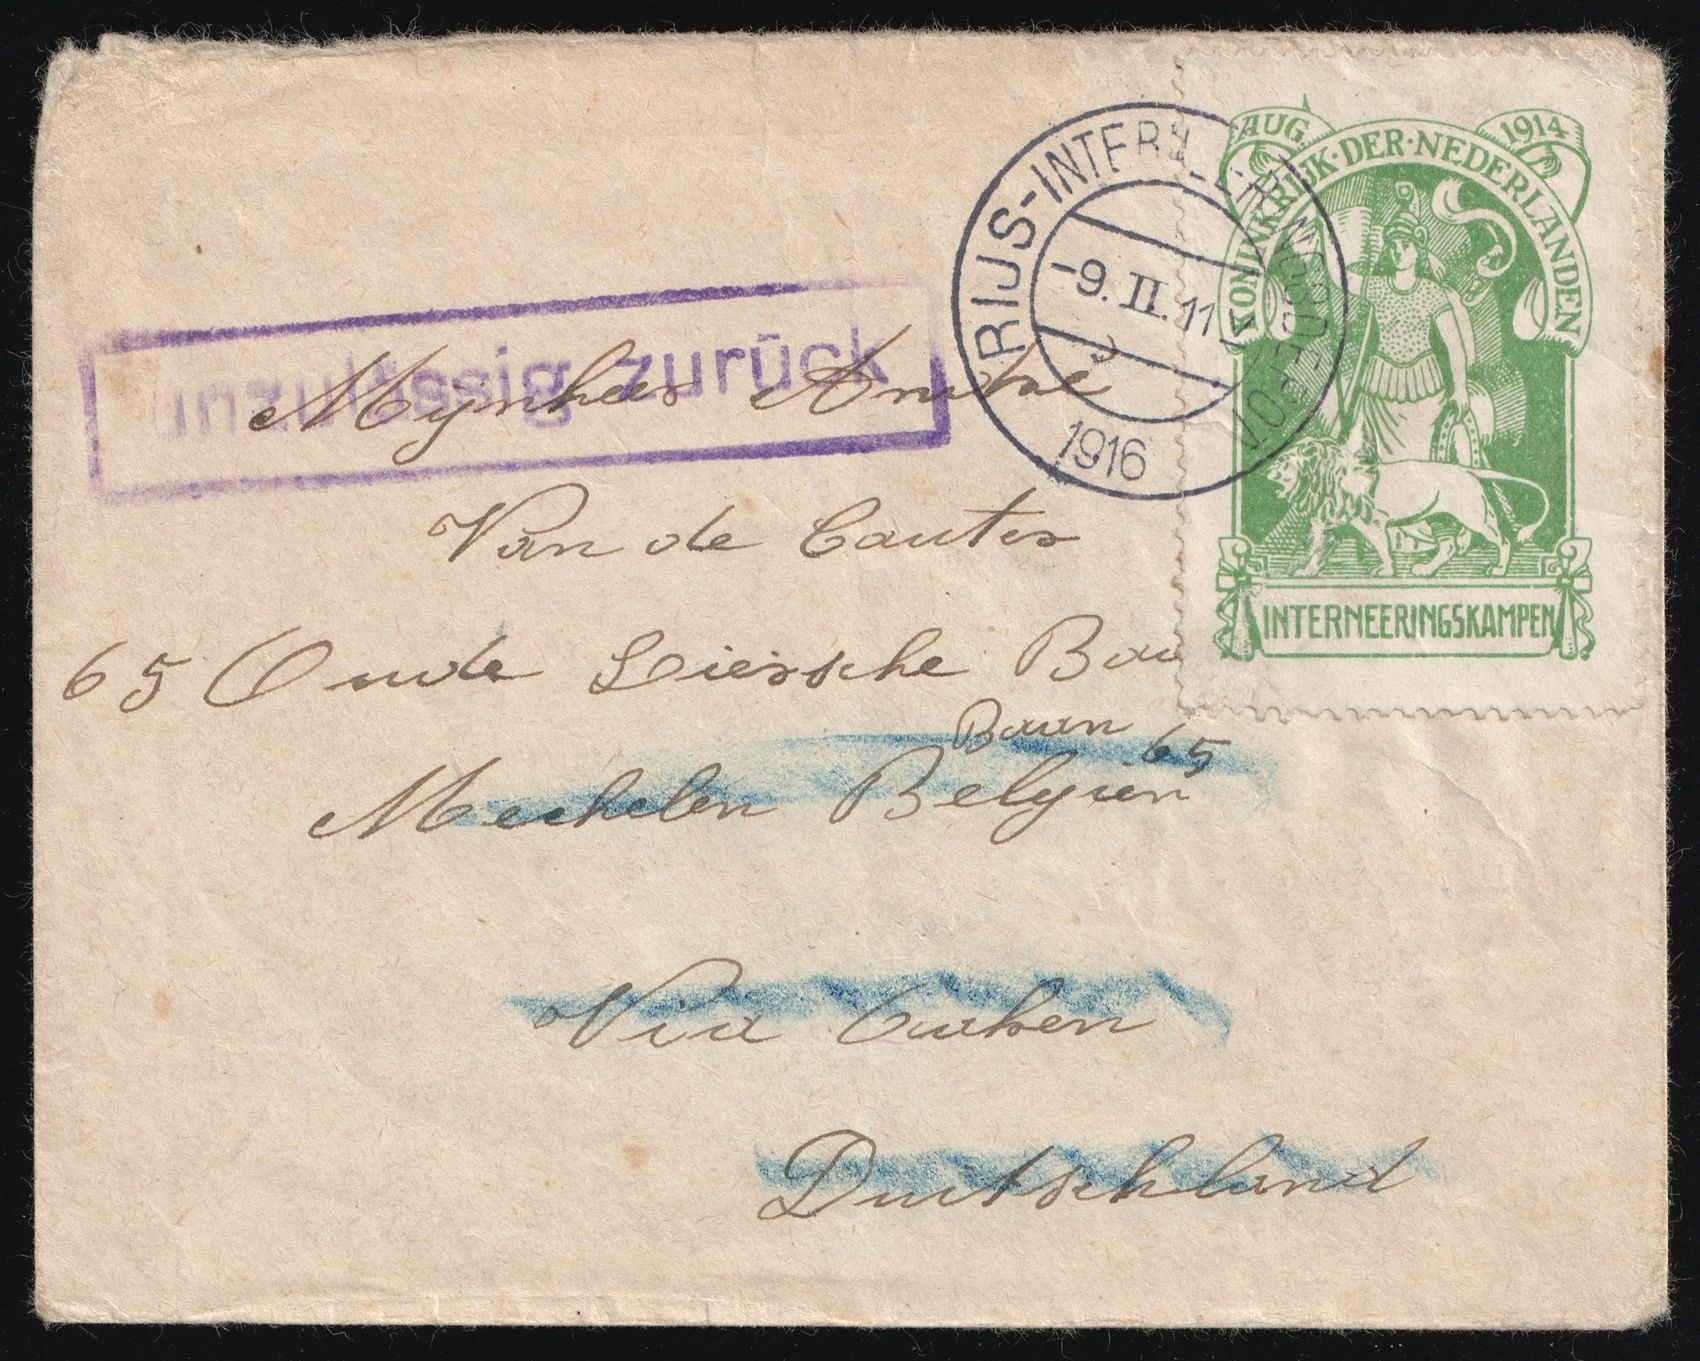 AUG. 1914
KONINKRIJK·DER·NEDERLANDEN
INTERNEERINGSKAMPEN
RIJS-INTERN
-9.II.11
1916
unzulässig zurück
Mijnheer
Van de Cauter
65 Oude Liersche Baa
Baan 65
Mechelen Belgien
Via Aachen
Duitschland